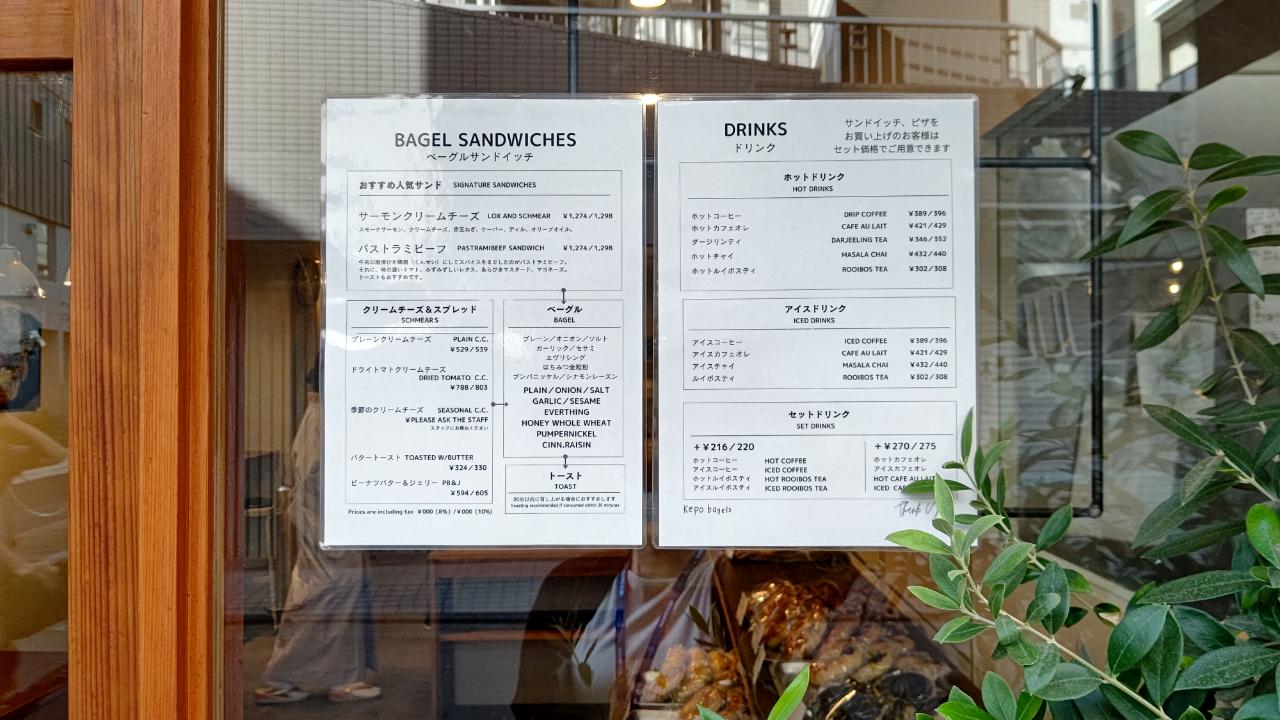 BAGEL SANDWICHES
ベーグルサンドイッチ
おすすめ人気サンド SIGNATURE SANDWICHES
サーモンクリームチーズ LOX AND SCHMEAR ¥1,274/1,298
スモークサーモン、クリームチーズ、赤玉ねぎ、ケーパー、ディル、オリーブオイル。
パストラミビーフ PASTRAMIBEEF SANDWICH ¥1,274/1,298
牛肉の塩漬けを燻製(くんせい)にしてスパイスをまぶしたのがパストラミビーフ。
それに、味の濃いトマト、みずみずしいレタス、あらびきマスタード、マヨネーズ。
トーストもおすすめです。
クリームチーズ&スプレッド
SCHMEARS
プレーンクリームチーズ PLAIN C.C.
¥529/539
ドライトマトクリームチーズ
DRIED TOMATO C.C.
¥788/803
季節のクリームチーズ SEASONAL C.C.
¥PLEASE ASK THE STAFF
スタッフにお尋ねください
バタートースト TOASTED W/BUTTER
¥324/330
ピーナツバター&ジェリー PB&J
¥594/605
Prices are including tax ¥000 (8%) /¥000 (10%)
ベーグル
BAGEL
プレーン/オニオン/ソルト
ガーリック/セサミ
エヴリシング
はちみつ全粒粉
プンパニッケル/シナモンレーズン
PLAIN/ONION/SALT
GARLIC/SESAME
EVERTHING
HONEY WHOLE WHEAT
PUMPERNICKEL
CINN.RAISIN
トースト
TOAST
30分以内に召し上がる場合におすすめします
Toasting recommended if consumed within 30 minutes
DRINKS
ドリンク
サンドイッチ、ピザを
お買い上げのお客様は
セット価格でご用意できます
ホットドリンク
HOT DRINKS
ホットコーヒー DRIP COFFEE ¥389/396
ホットカフェオレ CAFE AU LAIT ¥421/429
ダージリンティ DARJEELING TEA ¥346/352
ホットチャイ MASALA CHAI ¥432/440
ホットルイボスティ ROOIBOS TEA ¥302/308
アイスドリンク
ICED DRINKS
アイスコーヒー ICED COFFEE ¥389/396
アイスカフェオレ CAFE AU LAIT ¥421/429
アイスチャイ MASALA CHAI ¥432/440
ルイボスティ ROOIBOS TEA ¥302/308
セットドリンク
SET DRINKS
+¥216/220
ホットコーヒー HOT COFFEE
アイスコーヒー ICED COFFEE
ホットルイボスティ HOT ROOIBOS TEA
アイスルイボスティ ICED ROOIBOS TEA
+¥270/275
ホットカフェオレ
アイスカフェオレ
HOT CAFE AU LAIT
ICED
Kepo bagels
Thank